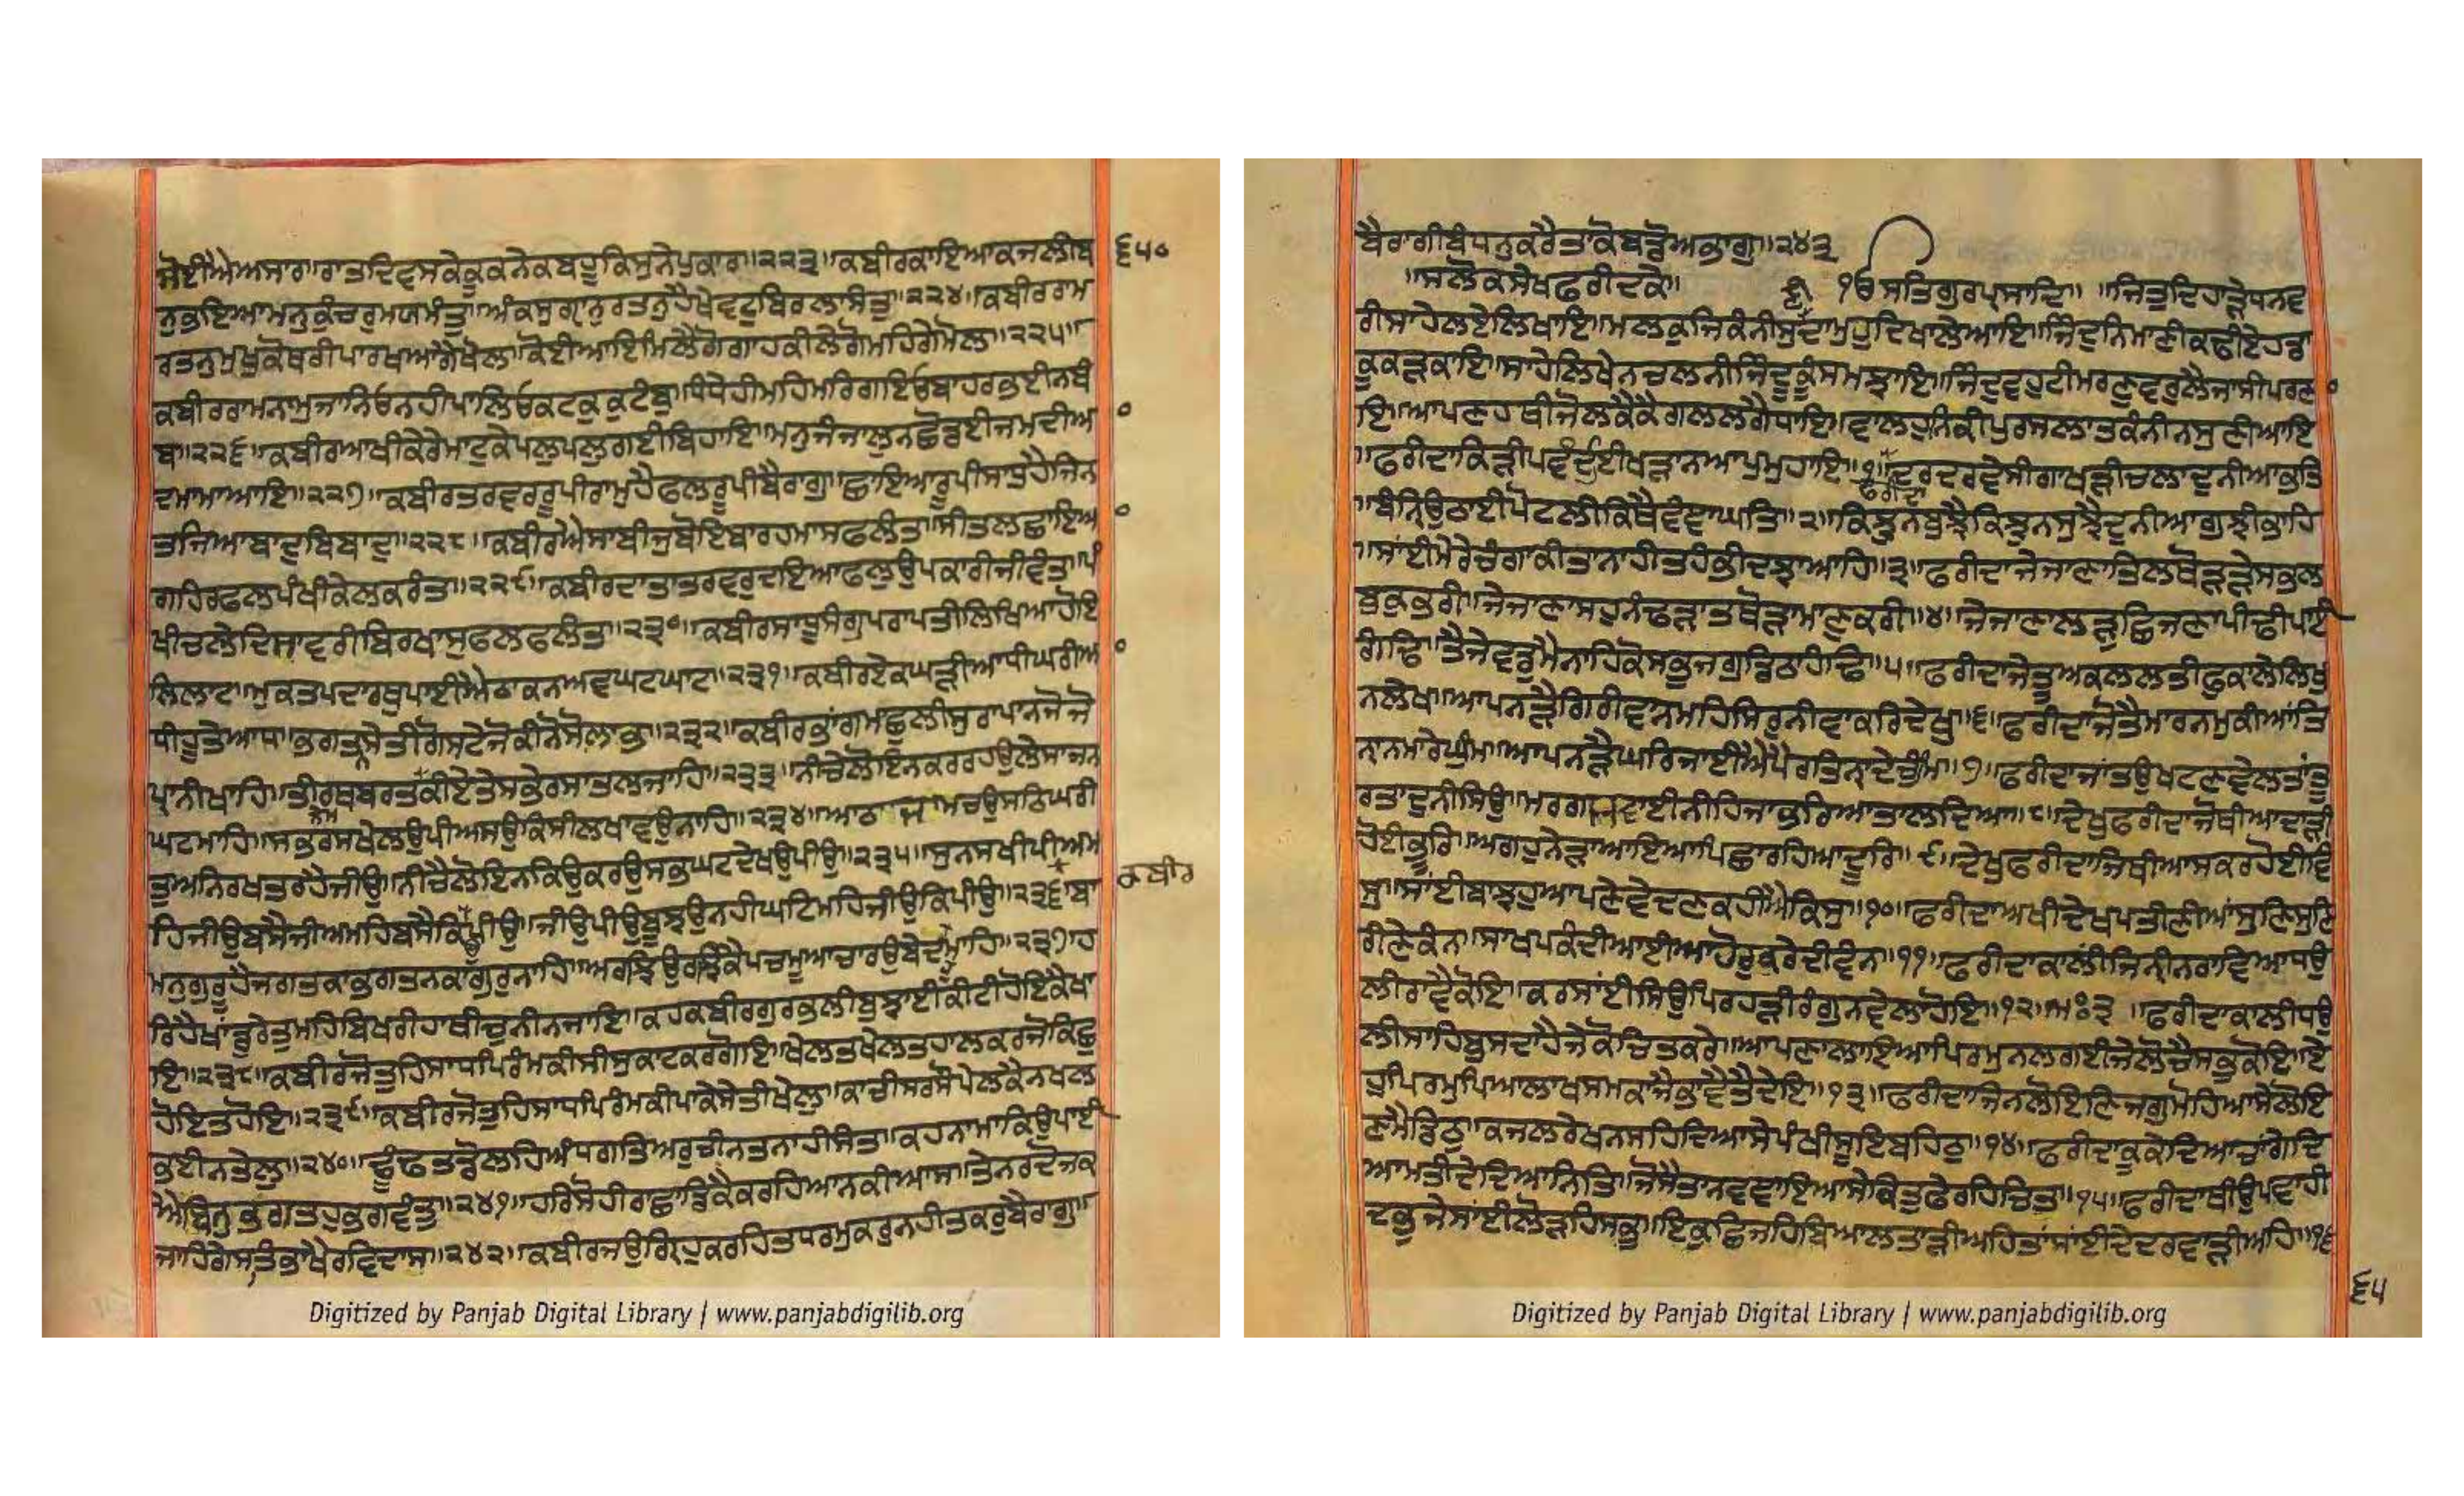 ਸੋਈਐਅਸਾਰ॥ਰਾਤਦਿਵਸਕੇਕੂਕਨੇਕਬਹੂਕਿਸੁਨੇਪੁਕਾਰ॥੨੨੩॥ਕਬੀਰਕਾਇਆਕਜਲੀਬ
੬੫੦
ਨੁਭਇਆਮਨੁਕੁੰਚਰੁਮਯਮੰਤੁ॥ਅੰਕਸੁਗੵਾਨੁਰਤਨੁਹੈਖੇਵਟੁਬਿਰਲਾਸੰਤੁ॥੨੨੪॥ਕਬੀਰਰਾਮ
ਰਤਨੁਮੁਖੁਕੋਥਰੀਪਾਰਖਆਗੈਖੋਲਾ॥ਕੋਈਆਇਮਿਲੈਗੋਗਾਹਕੀਲੇਗੋਮਹਿਗੇਮੋਲਾ॥੨੨੫॥
ਕਬੀਰਰਾਮਨਾਮੁਜਾਨਿਓਨਹੀਪਾਲਿਓਕਟਕੁਕੁਟੰਬੁ॥ਧੰਧੇਹੀਮਹਿਮਰਿਗਇਓਬਾਹਰਭਈਨਬੰ
ਬ॥੨੨੬॥ਕਬੀਰਆਖੀਕੇਰੇਮਾਟੁਕੇਪਲੁਪਲੁਗਈਬਿਹਾਇ॥ਮਨੁਜੰਜਾਲੁਨਛੋਡਈਜਮਦੀਅ
ਦਮਾਮਾਆਇ॥੨੨੭॥ਕਬੀਰਤਰਵਰਰੂਪੀਰਾਮੁਹੈਫਲਰੂਪੀਬੈਰਾਗੁ॥ਛਾਇਆਰੂਪੀਸਾਧੁਹੈਜਿਨ
ਤਜਿਆਬਾਦੁਬਿਬਾਦੁ॥੨੨੮॥ਕਬੀਰਐਸਾਬੀਜੁਬੋਇਬਾਰਹਮਾਸਫਲੰਤ॥ਸੀਤਲਛਾਇਆ
ਗਹਿਰਫਲਪੰਖੀਕੇਲਕਰੰਤ॥੨੨੯॥ਕਬੀਰਦਾਤਾਤਰਵਰੁਦਇਆਫਲੁਉਪਕਾਰੀਜੀਵੰਤ॥ਪੰ
ਖੀਚਲੇਦਿਸਾਵਰੀਬਿਰਖਾਸੁਫਲਫਲੰਤ॥੨੩੦॥ਕਬੀਰਸਾਧੂਸੰਗੁਪਰਾਪਤੀਲਿਖਿਆਹੋਇ
ਲਿਲਾਟ॥ਮੁਕਤਪਦਾਰਥੁਪਾਈਐਠਾਕਨਅਵਘਟਘਾਟ॥੨੩੧॥ਕਬੀਰਏਕਘੜੀਆਧੀਘਰੀਆ
ਧੀਹੂਤੇਆਧ॥ਭਗਤਨਸੇਤੀਗੋਸਟੇਜੋਕੀਨੋਸੋਲਾਭ॥੨੩੨॥ਕਬੀਰਭਾਂਗਮਾਛੁਲੀਸੁਰਾਪਾਨਜੋਜੋ
ਪ੍ਰਾਨੀਖਾਹਿ॥ਤੀਰਥਬਰਤਕੀਏਤੇਸਭੇਰਸਾਤਲਜਾਹਿ॥੨੩੩॥ਨੀਚੇਲੋਇਨਕਰਰਹਉਲੇਸਾਜਨ
ਘਟਮਾਹਿ॥ਸਭਰਸਖੇਲਉਪੀਅਸਉਕਿਸੀਲਖਾਵਉਨਾਹਿ॥੨੩੪॥ਆਠਜਾਮਚਉਸਠਿਘਰੀ
ਤੁਅਨਿਰਖਤਰਹੈਜੀਉ॥ਨੀਚੈਲੋਇਨਕਿਉਕਰਉਸਭਘਟਦੇਖਉਪੀਉ॥੨੩੫॥ਸੁਨਸਖੀਪੀਅਮ
ਕਬੀਰ
ਹਿਜੀਉਬਸੈਜੀਅਮਹਿਬਸੈਕਿਪੀਉ॥ਜੀਉਪੀਉਬੂਝਉਨਹੀਘਟਿਮਹਿਜੀਉਕਿਪੀਉ॥੨੩੬॥ਬਾ
ਮਨੁਗੁਰੂਹੈਜਗਤਕਾਭਗਤਨਕਾਗੁਰੁਨਾਹਿ॥ਅਰਝਿਉਰਝਿਕੈਪਚਮੂਆਚਾਰਉਬੇਦਮਾਹਿ॥੨੩੭॥ਹ
ਰਿਹੈਖਾਂਡੁਰੇਤੁਮਹਿਬਿਖਰੀਹਾਥੀਚੁਨੀਨਜਾਇ॥ਕਹਕਬੀਰਗੁਰਭਲੀਬੁਝਾਈਕੀਟੀਹੋਇਕੈਖਾ
ਇ॥੨੩੮॥ਕਬੀਰਜੋਤੁਹਿਸਾਧਪਿਰੰਮਕੀਸੀਸੁਕਾਟਕਰਗੋਇ॥ਖੇਲਤਖੇਲਤਹਾਲਕਰਜੋਕਿਛੁ
ਹੋਇਤਹੋਇ॥੨੩੯॥ਕਬੀਰਜੋਤੁਹਿਸਾਧਪਿਰੰਮਕੀਪਾਕੇਸੇਤੀਖੇਲੁ॥ਕਾਚੀਸਰਸੋਪੇਲਕੈਨਖਲ
ਭਈਨਤੇਲੁ॥੨੪੦॥ਢੂੰਢਤਡੋਲਹਿਅੰਧਗਤਿਅਰੁਚੀਨਤਨਾਹੀਸੰਤ॥ਕਹਨਾਮਾਕਿਉਪਾਈ
ਐਬਿਨੁਭਗਤਹੁਭਗਵੰਤੁ॥੨੪੧॥ਹਰਿਸੋਹੀਰਾਛਾਡਿਕੈਕਰਹਿਆਨਕੀਆਸ॥ਤੇਨਰਦੋਜਕ
ਜਾਹਿਗੇਸਤਭਾਖੈਰਵਿਦਾਸ॥੨੪੨॥ਕਬੀਰਜਉਗ੍ਰਿਹੁਕਰਹਿਤਧਰਮੁਕਰੁਨਹੀਤਕਰੁਬੈਰਾਗੁ॥
Digitized by Panjab Digital Library | www.panjabdigilib.org
ਬੈਰਾਗੀਬੰਧਨੁਕਰੈਤਾਕੋਬਡੋਅਭਾਗੁ॥੨੪੩
॥ਸਲੋਕਸੇਖਫਰੀਦਕੇ॥ ੴਸਤਿਗੁਰਪ੍ਰਸਾਦਿ॥ ॥ਜਿਤੁਦਿਹਾੜੇਧਨਵ
ਰੀਸਾਹੇਲਏਲਿਖਾਇ॥ਮਲਕੁਜਿਕੰਨੀਸੁਣੀਦਾਮੁਹੁਦਿਖਾਲੇਆਇ॥ਜਿੰਦੁਨਿਮਾਣੀਕਢੀਏਹਡਾ
ਕੂਕੜਕਾਇ॥ਸਾਹੇਲਿਖੇਨਚਲਨੀਜਿੰਦੂਕੂੰਸਮਝਾਇ॥ਜਿੰਦੁਵਹੁਟੀਮਰਣੁਵਰੁਲੈਜਾਸੀਪਰਣਾ
ਇ॥ਆਪਣਹਥੀਜੋਲਕੈਕੈਗਲਲਗੈਧਾਇ॥ਵਾਲਹੁਨਿਕੀਪੁਰਸਲਾਤਕੰਨੀਨਸੁਣੀਆਇ
॥ਫਰੀਦਾਕਿੜੀਪਵੰਦੀਈਖੜਾਨਆਪੁਮੁਹਾਇ॥੧॥ਫਰੀਦਾਦਰਦਰਵੇਸੀਗਾਖੜੀਚਲਾਦੁਨੀਆਭਤਿ
॥ਬੰਨਿੑਉਠਾਈਪੋਟਲੀਕਿਥੈਵੰਞਾਘਤਿ॥੨॥ਕਿਝੁਨਬੁਝੈਕਿਝੁਨਸੁਝੈਦੁਨੀਆਗੁਝੀਭਾਹਿ
॥ਸਾਂਈਮੇਰੇਚੰਗਾਕੀਤਾਨਾਹੀਤਹੰਭੀਦਝਾਆਹਿ॥੩॥ਫਰੀਦਾਜੇਜਾਣਾਤਿਲਥੋੜੜੇਸਭਲ
ਬੁਕੁਭਰੀ॥ਜੇਜਾਣਾਸਹੁਨੰਢੜਾਤਥੋੜਾਮਾਣੁਕਰੀ॥੪॥ਜੇਜਾਣਾਲੜੁਛਿਜਣਾਪੀਢੀਪਾਈ
ਗੰਢਿ॥ਤੈਜੇਵਡੁਮੈਨਾਹਿਕੋਸਭੁਜਗੁਡਿਠਾਹੰਢਿ॥੫॥ਫਰੀਦਾਜੇਤੂਅਕਲਲਤੀਫੁਕਾਲੇਲਿਖੁ
ਨਲੇਖ॥ਆਪਨੜੈਗਿਰੀਵਾਨਮਹਿਸਿਰੁਨੀਵਾਕਰਿਦੇਖੁ॥੬॥ਫਰੀਦਾਜੋਤੈਮਾਰਨਮੁਕੀਆਂਤਿ
ਨਾਨਮਾਰੇਘੁੰਮ॥ਆਪਨੜੈਘਰਿਜਾਈਐਪੈਰਤਿਨਾੑਦੇਚੁੰਮ॥੭॥ਫਰੀਦਾਜਾਂਤਉਖਟਣਵੇਲਤਾਂਤੂ
ਰਤਾਦੁਨੀਸਿਉ॥ਮਰਗਸਵਾਈਨੀਹਿਜਾਭਰਿਆਤਾਲਦਿਆ॥੮॥ਦੇਖੁਫਰੀਦਾਜੋਥੀਆਦਾੜੀ
ਹੋਈਭੂਰਿ॥ਅਗਹੁਨੇੜਾਆਇਆਪਿਛਾਰਹਿਆਦੂਰਿ॥੯॥ਦੇਖੁਫਰੀਦਾਜਿਥੀਆਸਕਰਹੋਈਵਿ
ਸੁ॥ਸਾਂਈਬਾਝਹੁਆਪਣੇਵੇਦਣਕਹੀਐਕਿਸੁ॥੧੦॥ਫਰੀਦਾਅਖੀਦੇਖਪਤੀਣੀਆਂਸੁਣਿਸੁਣਿ
ਰੀਣੇਕੰਨ॥ਸਾਖਪਕੰਦੀਆਈਆਹੋਰੁਕਰੇਦੀਵੰਨ॥੧੧॥ਫਰੀਦਾਕਾਲੀਜਿਨੀਨਰਾਵਿਆਧਉ
ਲੀਰਾਵੈਕੋਇ॥ਕਰਸਾਂਈਸਿਉਪਿਰਹੜੀਰੰਗੁਨਵੇਲਾਹੋਇ॥੧੨॥ਮਃ੩॥ਫਰੀਦਾਕਾਲੀਧਉ
ਲੀਸਾਹਿਬੁਸਦਾਹੈਜੇਕੋਚਿਤਕਰੇ॥ਆਪਣਾਲਾਇਆਪਿਰਮੁਨਲਗਈਜੇਲੋਚੈਸਭੁਕੋਇ॥ਏ
ਹੁਪਿਰਮੁਪਿਆਲਾਖਸਮਕਾਜੈਭਾਵੈਤੈਦੇਇ॥੧੩॥ਫਰੀਦਾਜਿਨਲੋਇਣਿਜਗੁਮੋਹਿਆਸੇਲੋਇ
ਣਮੈਡਿਠੁ॥ਕਜਲਰੇਖਨਸਹਦਿਆਸੇਪੰਖੀਸੂਇਬਹਿਠੁ॥੧੪॥ਫਰੀਦਾਕੂਕੇਦਿਆਚਾਂਗੇਦਿ
ਆਮਤੀਦੇਦਿਆਨਿਤਿ॥ਜੋਸੈਤਾਨਵਵਞਾਇਆਸੇਕਿਤੁਫੇਰਹਿਚਿਤ॥੧੫॥ਫਰੀਦਾਥੀਉਪਵਾਹੀ
ਦਭੁਜੇਸਾਂਈਲੋੜਹਿਸਭੁ॥ਇਕੁਛਿਜਹਿਬਿਆਲਤਾੜੀਅਹਿਤਾਂਸਾਂਈਦੇਦਰਵਾੜੀਅਹਿ॥੧੬
੬੫
Digitized by Panjab Digital Library | www.panjabdigilib.org